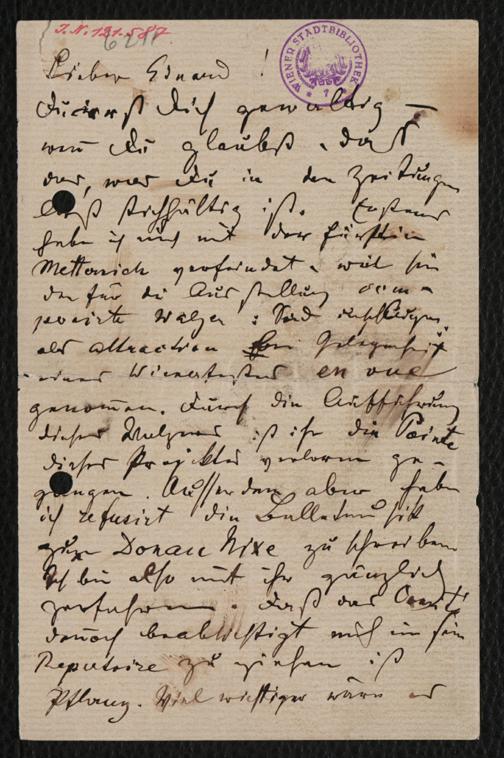 J.N. 121.587
WIENER STADTBIBLIOTHEK
Lieber Eduard!
Du irrst Dich gewaltig –
wenn Du glaubst, daß
das, was Du in den Zeitungen
ließt stichhältig ist. Erstens
habe ich mich mit der Fürstin
Metternich verfeindet, weil sie
den für die Ausstellung com-
ponirte Walzer: Seid umschlungen
als attraction bei Gelegenheit
eines Wienerfestes en vue
genommen. Durch die Aufführung
dieses Walzers ist ihr die Pointe
dieses Projektes verloren ge-
gangen. Ausserdem aber habe
ich refusirt die Balletmusik
zur Donau Nixe zu schreiben
Ich bin also mit ihr gänzlich
zerfahren. Daß das Comité
dennoch beabsichtigt mich in sein
Repertoire zu ziehen ist
Pflanz. Viel wichtiger wäre es